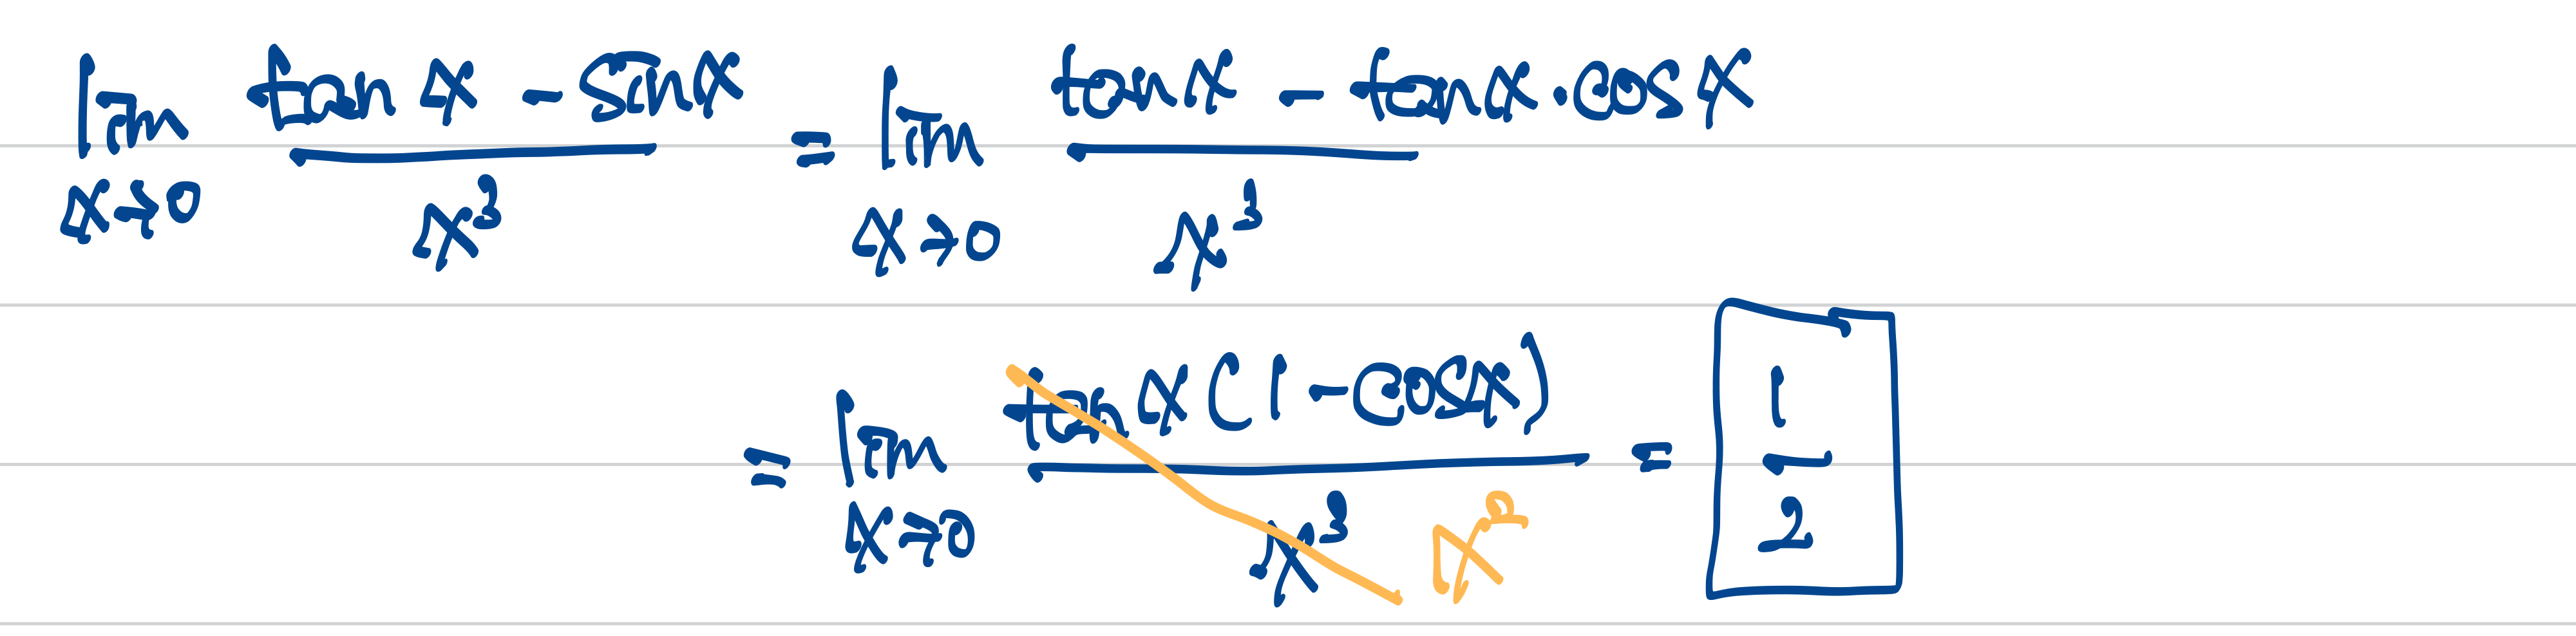 lim x→0 (tan x - sin x) / x³ = lim x→0 (tan x - tan x · cos x) / x³
= lim x→0 (tan x (1 - cos x)) / x³ x² = 1/2